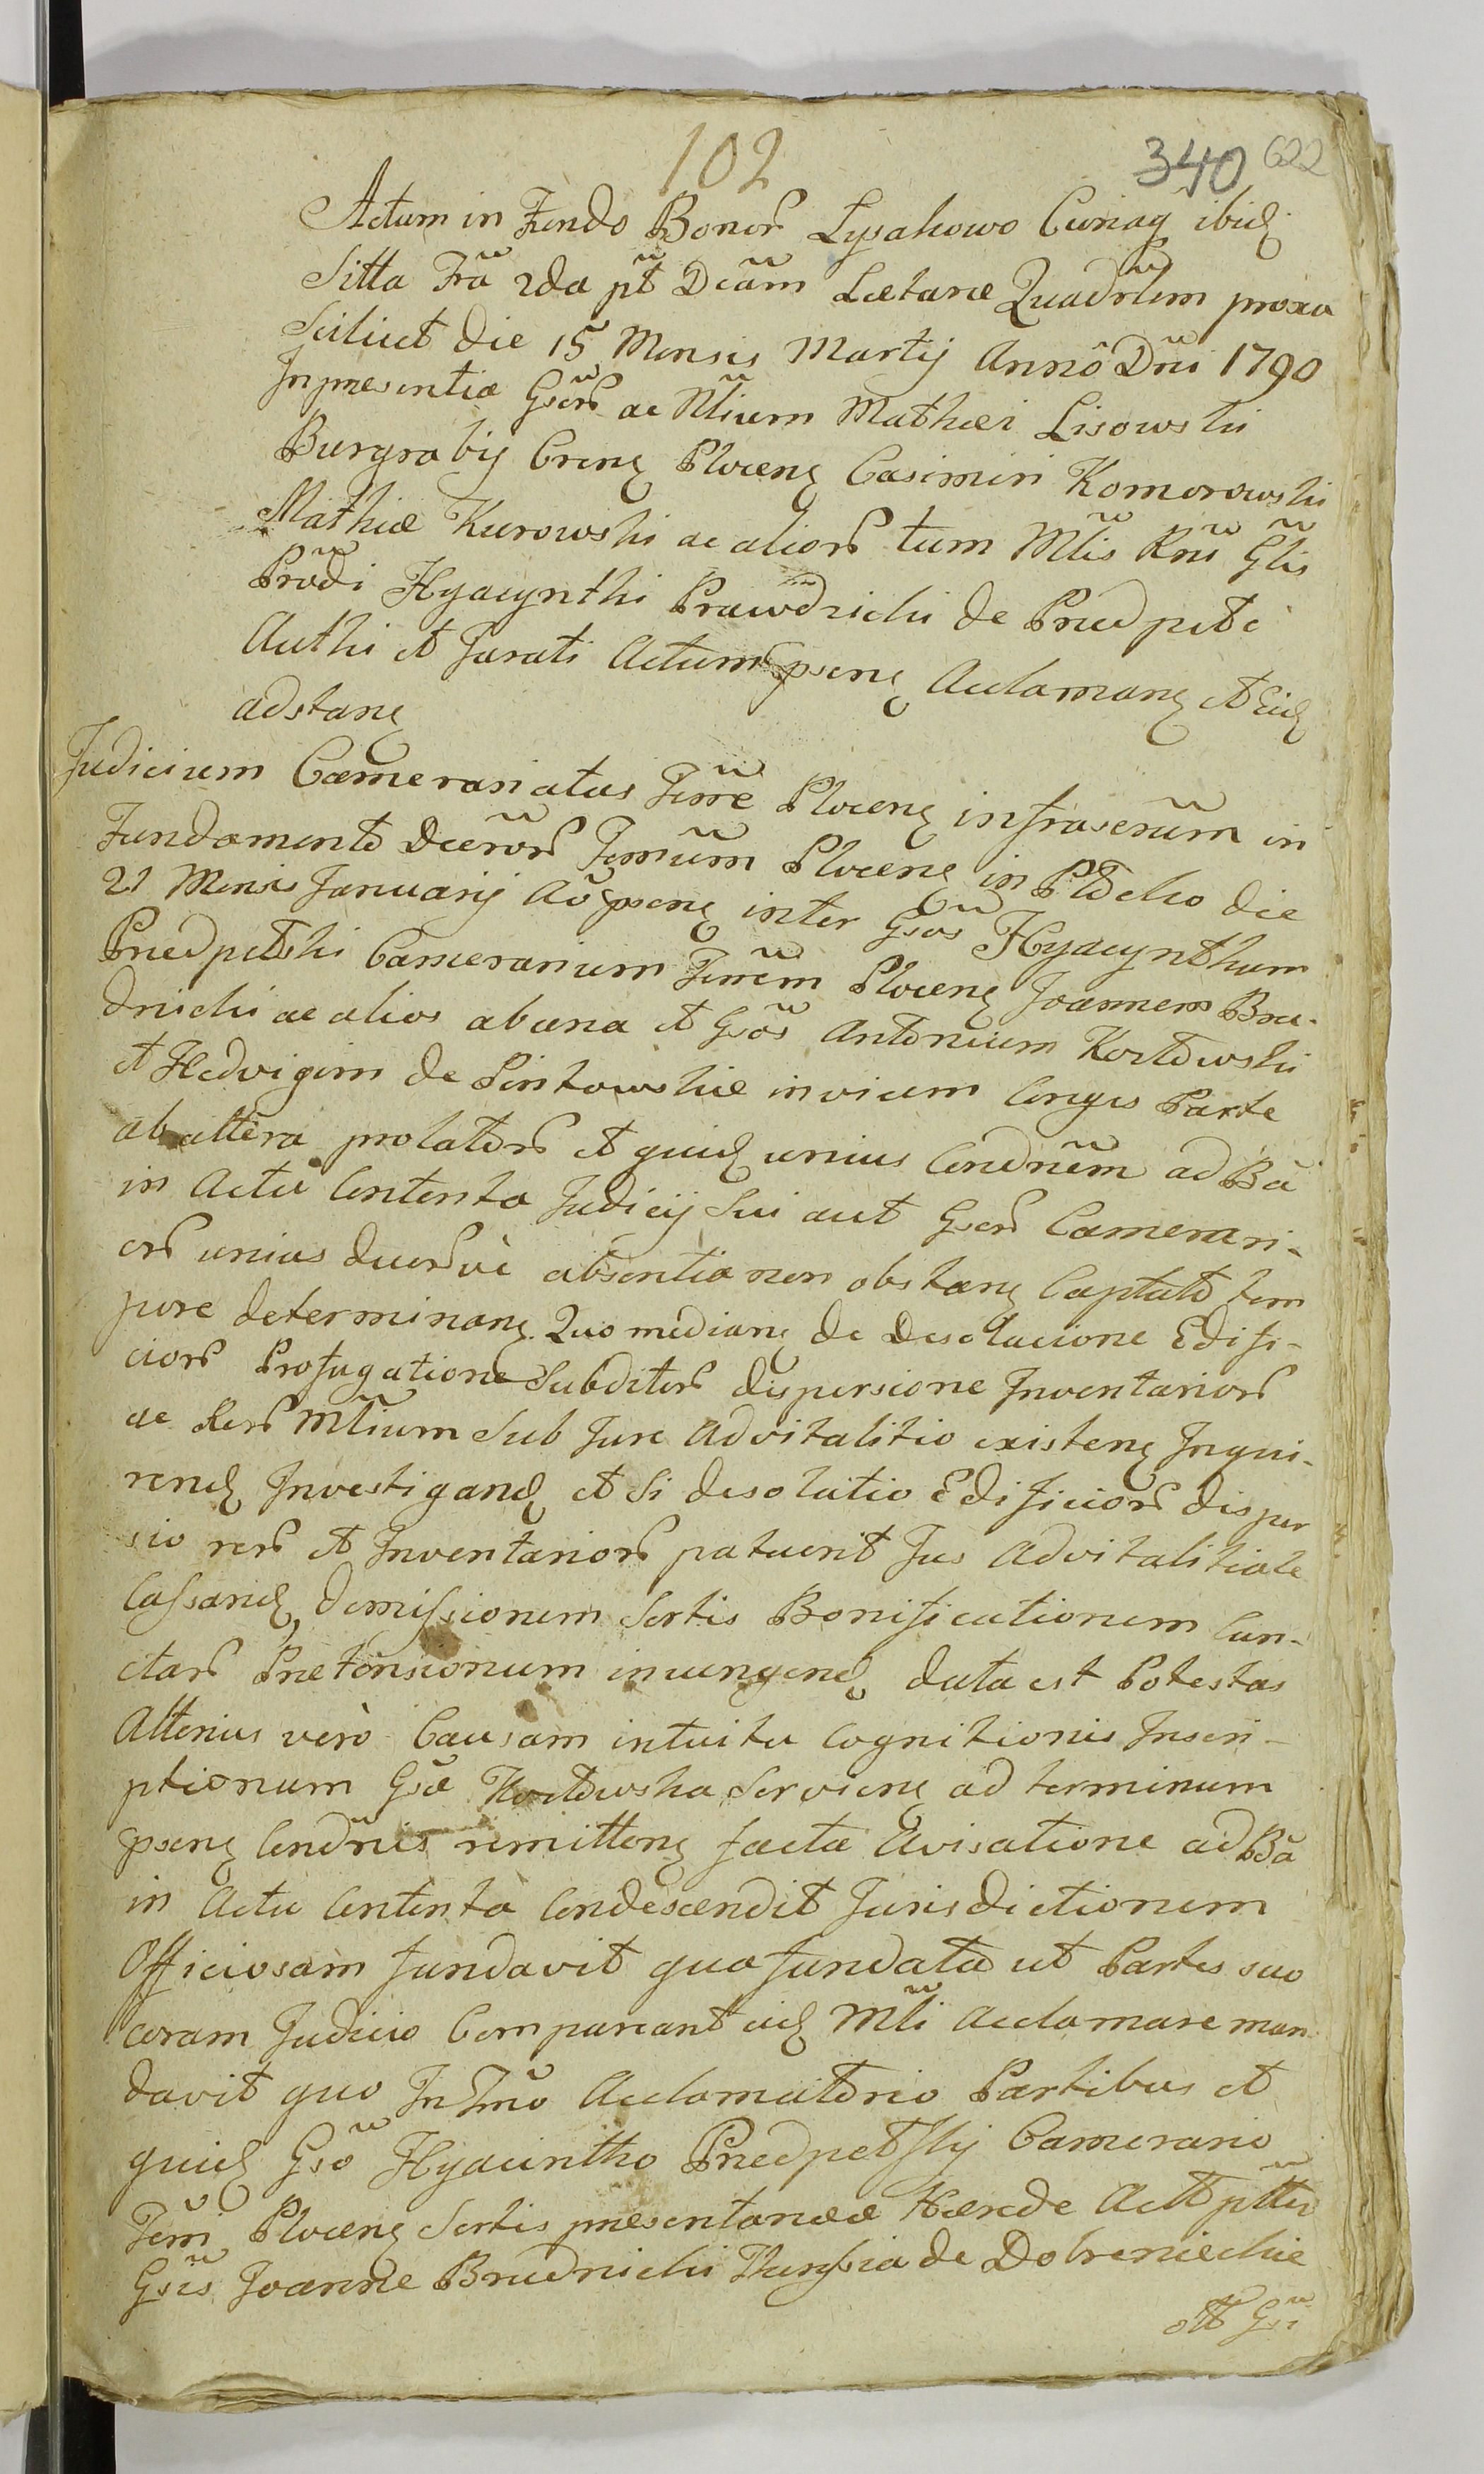 102
340 622
Actum in Fundo Bonor̃ Lysakowo Curiaq ibid
Sitta Fr̃a 2da pt̃ Dc̃am Lætare Quadrl̃em proxa
Scilicet die 15 Mensis Martij Annô Dñi 1790
Inpræsentia Gsor̃ ac Nl̃ium Mathæi Lisowski
Burgrabij Cren Plocen Casimiri Komorowski
Mathiæ Kurowski ac alior̃ tum Ml̃is Rñi Gl̃is
Pror̃di Hyacynthi Prawdzicki de Pried petc
Authi et Jurati Actum psen Acclaman et Eid
adstan
Judicium Camerariatus Terr̃e Plocen infrascrũm in
Fundamento Decr̃or̃ Terr̃ium Plocen in Plocko die
21 Mensis Januarij Aõ psen inter Gsõs Hyacynthum
Pniedpeltski Camerarium Terr̃em Plocen Joannem Bru-
dnicki ac alios abuna et Gsõs Antonium Kozlowski
et Hedvigem de Pintowskie invicem Conges Parte
abaltera prolator̃ et quid unius Condnẽm ad Bã
in Actu Contenta Judicij Sui aut Gsor̃ Camerari-
or̃ unius duor̃ve absentia non obstan Captato tem
pore determinan. Quo median de Desolacione Edifi-
cior̃ Profugatione Subditor̃ dispersione Inventarior̃
ac Rer̃ Ml̃ium Sub Jure Advitalitio existen Inqui-
rend Investigand et Si desolatio Edificior̃ disper
sio rer̃ et Inventarior̃ patuerit Jus Advitalitiale
Cassand, demissionem Sortis Bonificationem Cun-
ctar̃ Prætensionum iniungend data est Potestas
Alterius verò Causam intuitu Cognitionis Inscri-
ptionum Gsæ Kozlowska Servien ad terminum
psen Condñis remitten facta Avisatione ad Bã
in Actu Contenta Condescendit Jurisdictionem
Officiosam fundavit qua fundata ut Partes suo
coram Judicio Compareant eid Ml̃i Acclamare man
davit quo In Tm̃o Acclamatorio Partibus et
quid Gsõ Hyacintho Pniedpetskij Camerario
Terr̃i Plocen Sortis præsentaneæ Hærede Actt ptter
Gsis Joanne Brudnicki Thersia de Dobrznieckie
ott Gsi